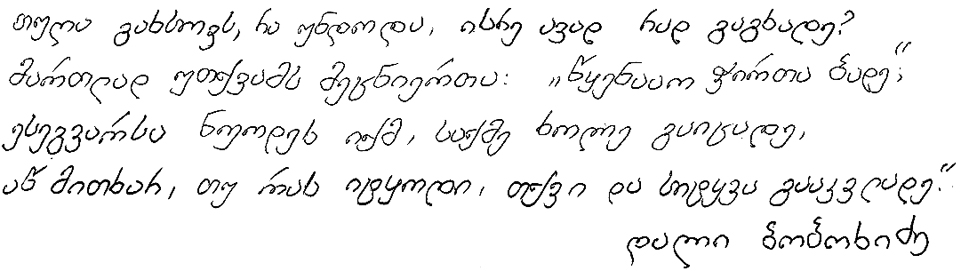 თუღა გახსოვს, რა უნდოდა, ისრე ავად რად გაგხადე?
მართლად უთქვამს მეცნიერთა: „წყენააო ჭირთა ბადე“;
ესეგვარსა ნუოდეს იქმ, საქმე ხოლე გაიცადე,
აწ მითხარ, თუ რას იტყოდი, თქვი და სიტყვა გააკვლადე.“
დალი ბობოხიძე